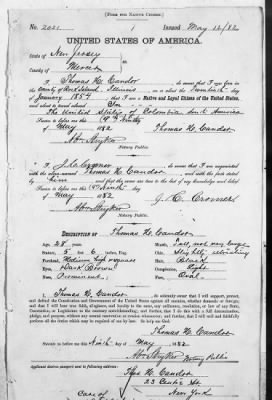 [FORM FOR NATIVE CITIZEN.]
No. 2021. Issued May 12/82
UNITED STATES OF AMERICA.
State of New Jersey
County of Mercer
I, Thomas H. Candor, do swear that I was born in
County of Rock Island, Illinois on the
of January 1854 Native and Loyal Citizen of the United States,
and about to travel abroad
The United States of Colombia South America
Sworn to before me this 9th
May 1882 Thomas H. Candor
Notary Public.
I, do swear that I am acquainted
with the above-named Thomas H. Candor, and with the facts stated
him and that the same are true to the best of my knowledge and belief.
Sworn to before me this Ninth day
of May 1882
Notary Public.
DESCRIPTION OF Thomas H. Candor
Age, 28 years. Mouth,
Stature, 5 feet 6 inches, Eng. Chin,
Forehead, Medium high Hair, Black
Eyes, Dark Brown Complexion,
Nose, Prominent Face, Oval
I, Thomas H. Candor, do solemnly swear that I will support, protect,
and defend the Constitution and Government of the United States against all enemies, whether domestic or foreign;
and that I will bear true faith, allegiance, and loyalty to the same, any ordinance, resolution, or law of any State,
Convention, or Legislature to the contrary notwithstanding; and further, that I do this with a full determination,
pledge, and purpose, without any mental reservation or evasion whatsoever; and further, that I will well and faithfully
perform all the duties which may be required of me by law. So help me God.
Thomas H. Candor
Sworn to before me this Ninth day
of May 1882
Notary Public
Applicant desires passport sent to following address:
Thos H. Candor
23 Centre St
New York